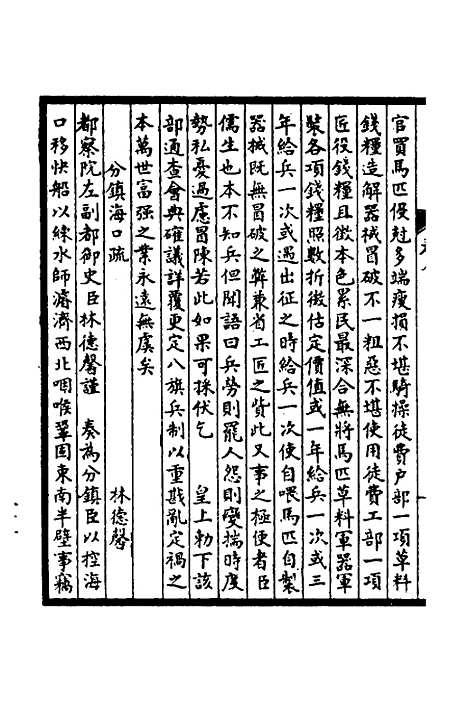 官買馬匹侵尅多端瘦損不堪騎操徒費户部一項草料
錢糧造解器械冒破不一粗惡不堪使用徒費工部一項
匠役錢糧且徵本色累民最深合無將馬匹草料軍器軍
裝各項錢糧照數折徵估定價值或一年給兵一次或三
年給兵一次或遇出征之時給兵一次使自喂馬匹自製
器械既無冒破之弊兼省工匠之貲此又事之極便者臣
儒生也本不知兵但聞語曰兵勞則罷人怨則變揣時度
勢私憂過慮冒陳若此如果可採伏乞 皇上勅下該
部通查會典確議詳覆更定八旗兵制以重戡亂定禍之
本萬世富强之業永遠無虞矣
分鎮海口疏 林德馨
都察院左副都御史臣林德馨謹 奏為分鎮臣以控海
口移快船以練水師濬濟西北咽喉鞏固東南半壁事竊